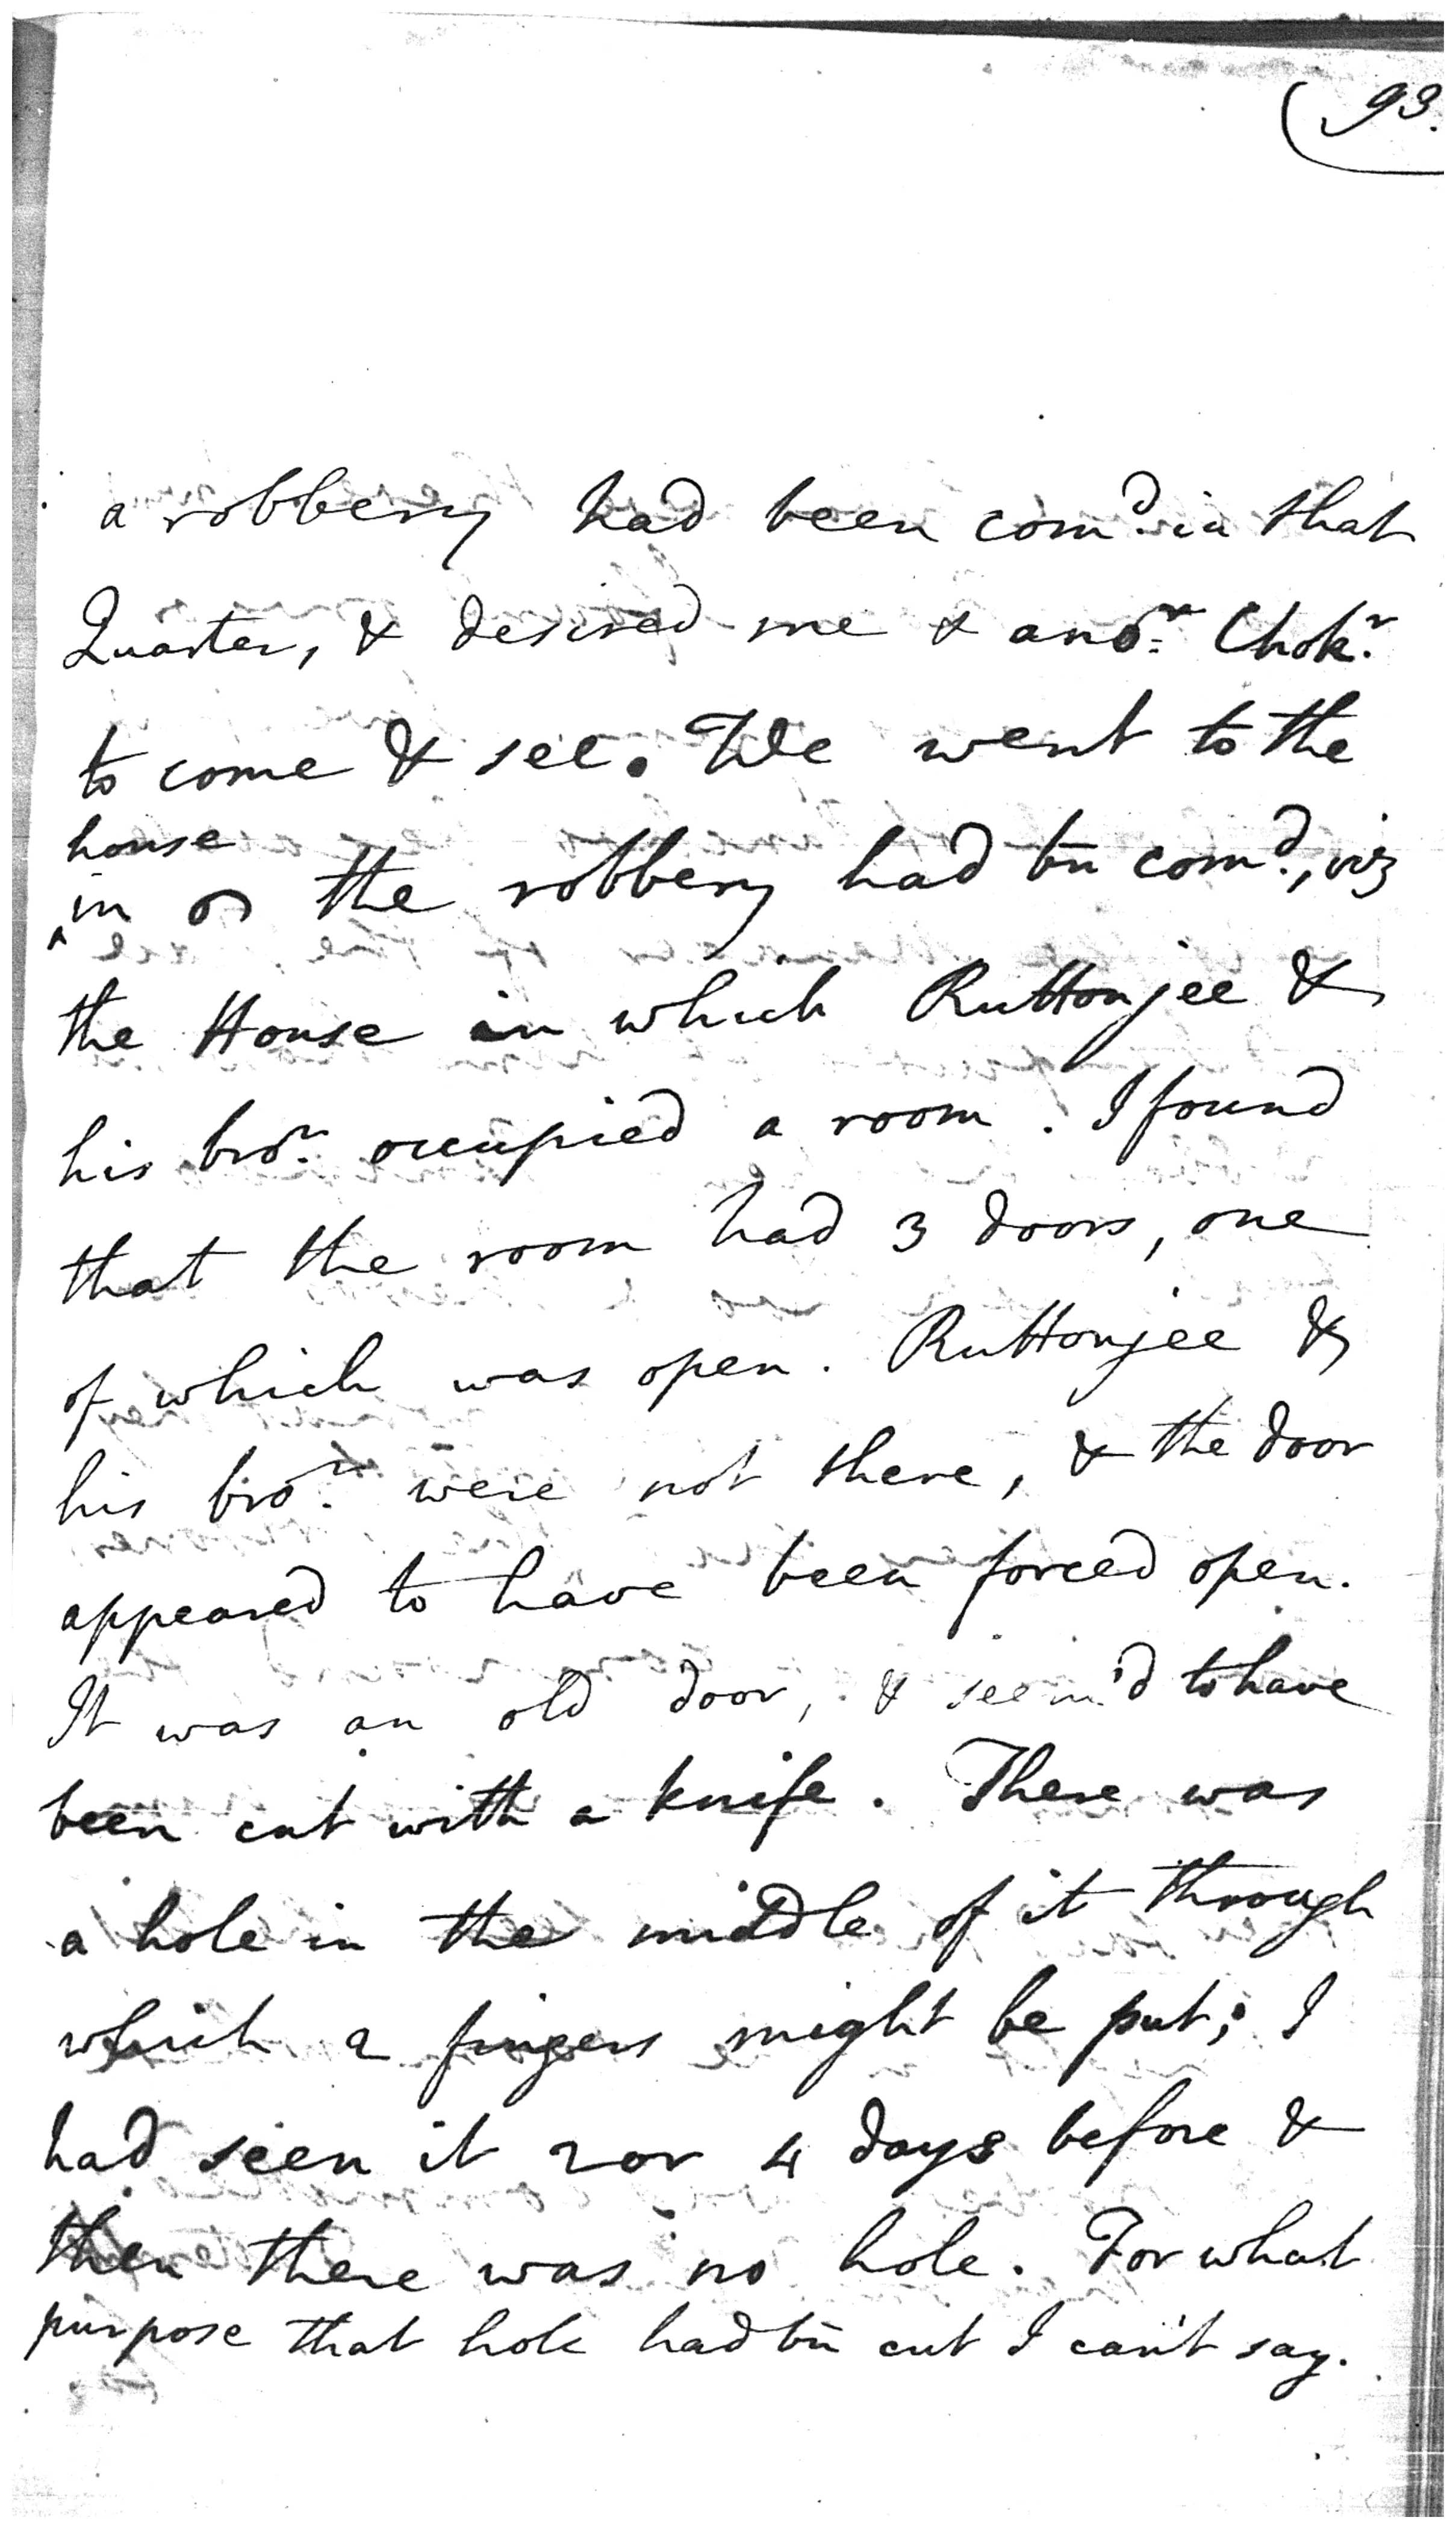 93.
a robbery had been com^d. in that
Quarter, & desired me & ano^r. Chok^r.
to come & see. We went to the
house
^in the robbery had bn com^d., viz
the House in which Ruttonjee &
his bro^r. occupied a room. I found
that the room had 3 doors, one
of which was open. Ruttonjee &
his bro^r. were not there, & the door
appeared to have been forced open.
It was an old door, & seem'd to have
been cut with a knife. There was
a hole in the middle of it through
which 2 fingers might be put; I
had seen it 2 or 4 days before &
then there was no hole. For what
purpose that hole had bn cut I can't say.